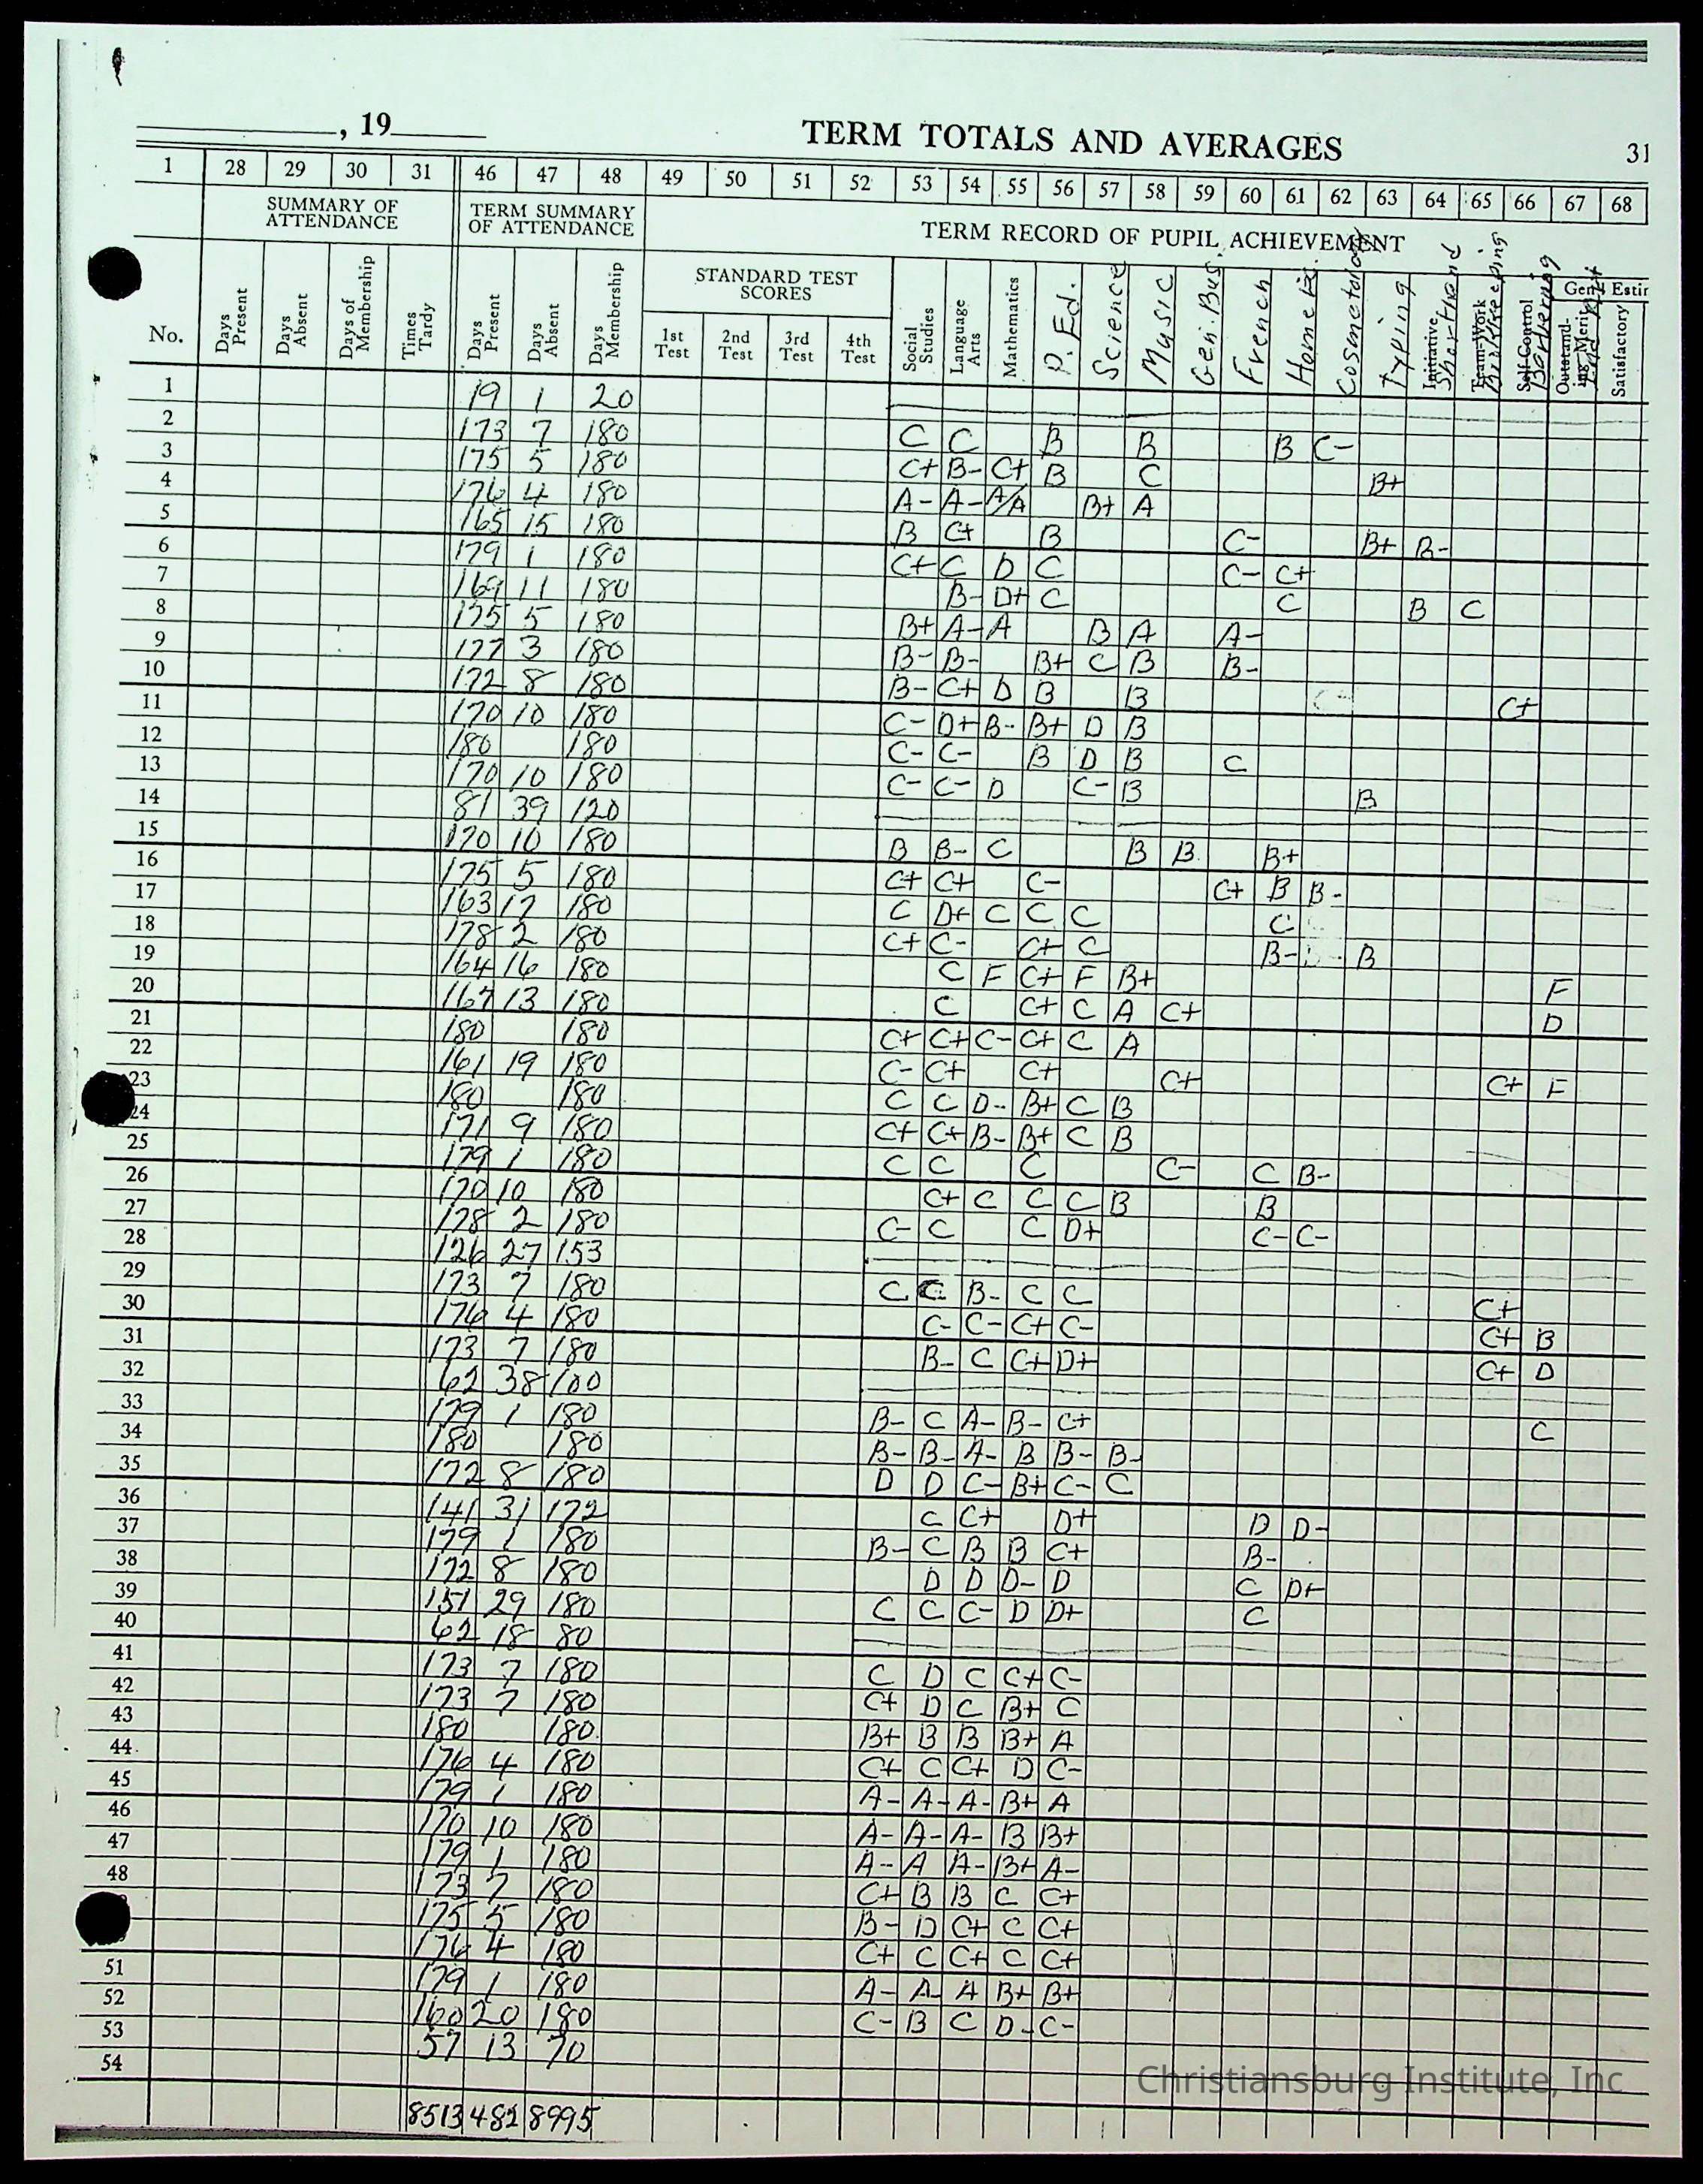 , 19
TERM TOTALS AND AVERAGES
31
1 28 29 30 31 46 47 48 49 50 51 52 53 54 55 56 57 58 59 60 61 62 63 64 65 66 67 68
SUMMARY OF ATTENDANCE
TERM SUMMARY OF ATTENDANCE
TERM RECORD OF PUPIL ACHIEVEMENT
STANDARD TEST SCORES
Gen'l Estir
No. Days Present Days Absent Days of Membership Times Tardy Days Present Days Absent Days Membership 1st Test 2nd Test 3rd Test 4th Test Social Studies Language Arts Mathematics P. Ed. Science Music Gen. Bus. French Home Ec. Cosmetology Typing Initiative Shorthand Team-Work Bookkeeping Self-Control Barbering Outstand-ing Merit Satisfactory
1 19 1 20
2 173 7 180 C C B B B C-
3 175 5 180 C+ B- C+ B C B+
4 176 4 180 A- A- A/A B+ A
5 165 15 180 B C+ B C- B+ B-
6 179 1 180 C+ C D C C- C+
7 169 11 180 B- D+ C C B C
8 175 5 180 B+ A- A B A A-
9 177 3 180 B- B- B+ C B B-
10 172 8 180 B- C+ D B B C+
11 170 10 180 C- D+ B- B+ D B
12 180 180 C- C- B D B C
13 170 10 180 C- C- D C- B B
14 81 39 120
15 170 10 180 B B- C B B B+
16 175 5 180 C+ C+ C- C+ B B-
17 163 17 180 C D+ C C C C
18 178 2 180 C+ C- C+ C B- B
19 164 16 180 C F C+ F B+ F
20 167 13 180 C C+ C A C+ D
21 180 180 C+ C+ C- C+ C A
22 161 19 180 C- C+ C+ C+ C+ F
23 180 180 C C D- B+ C B
24 171 9 180 C+ C+ B- B+ C B
25 179 1 180 C C C C- C B-
26 170 10 180 C+ C C C B B
27 178 2 180 C- C C D+ C- C-
28 126 27 153
29 173 7 180 C C B- C C C+
30 176 4 180 C- C- C+ C- C+ B
31 173 7 180 B- C C+ D+ C+ D
32 62 38 100
33 179 1 180 B- C A- B- C+ C
34 180 180 B- B- A- B B- B-
35 172 8 180 D D C- B+ C- C
36 141 31 172 C C+ D+ D D-
37 179 1 180 B- C B B C+ B-
38 172 8 180 D D D- D C D+
39 151 29 180 C C C- D D+ C
40 62 18 80
41 173 7 180 C D C C+ C-
42 173 7 180 C+ D C B+ C
43 180 180 B+ B B B+ A
44 176 4 180 C+ C C+ D C-
45 179 1 180 A- A- A- B+ A
46 170 10 180 A- A- A- B B+
47 179 1 180 A- A A- B+ A-
48 173 7 180 C+ B B C C+
175 5 180 B- D C+ C C+
176 4 180 C+ C C+ C C+
51 179 1 180 A- A- A B+ B+
52 160 20 180 C- B C D- C-
53 57 13 70
54
8513 482 8995
Christiansburg Institute, Inc